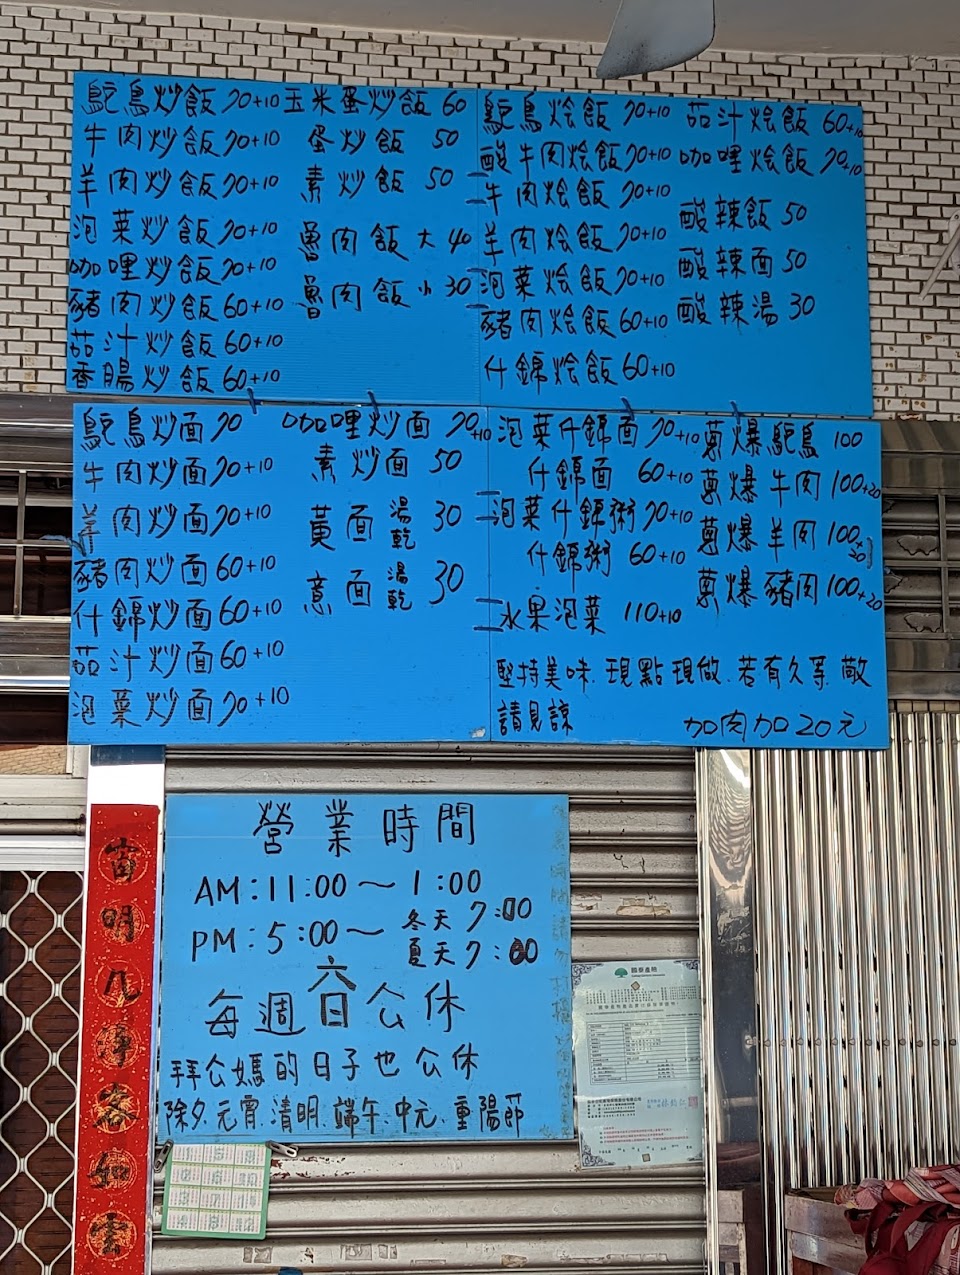 鴕鳥炒飯 70+10
牛肉炒飯 70+10
羊肉炒飯 70+10
泡菜炒飯 70+10
咖哩炒飯 70+10
豬肉炒飯 60+10
茄汁炒飯 60+10
香腸炒飯 60+10
玉米蛋炒飯 60
蛋炒飯 50
素炒飯 50
魯肉飯大 40
魯肉飯小 30
鴕鳥烩飯 70+10
酸牛肉烩飯 70+10
牛肉烩飯 70+10
羊肉烩飯 70+10
泡菜烩飯 70+10
豬肉烩飯 60+10
什錦烩飯 60+10
茄汁烩飯 60+10
咖哩烩飯 70+10
酸辣飯 50
酸辣面 50
酸辣湯 30
鴕鳥炒面 70
牛肉炒面 70+10
羊肉炒面 70+10
豬肉炒面 60+10
什錦炒面 60+10
茄汁炒面 60+10
泡菜炒面 70+10
咖哩炒面 70+10
素炒面 50
黃面 湯乾 30
意面 湯乾 30
泡菜什錦面 70+10
什錦面 60+10
泡菜什錦粥 70+10
什錦粥 60+10
水果泡菜 110+10
蔥爆鴕鳥 100
蔥爆牛肉 100+20
蔥爆羊肉 100+20
蔥爆豬肉 100+20
堅持美味.現點現做.若有久等.敬
請見諒
加肉加20元
營業時間
AM:11:00～1:00
PM:5:00～冬天7:00
夏天7:00
每週六日公休
拜公媽的日子也公休
除夕.元宵.清明.端午.中元.重陽節
國泰產險